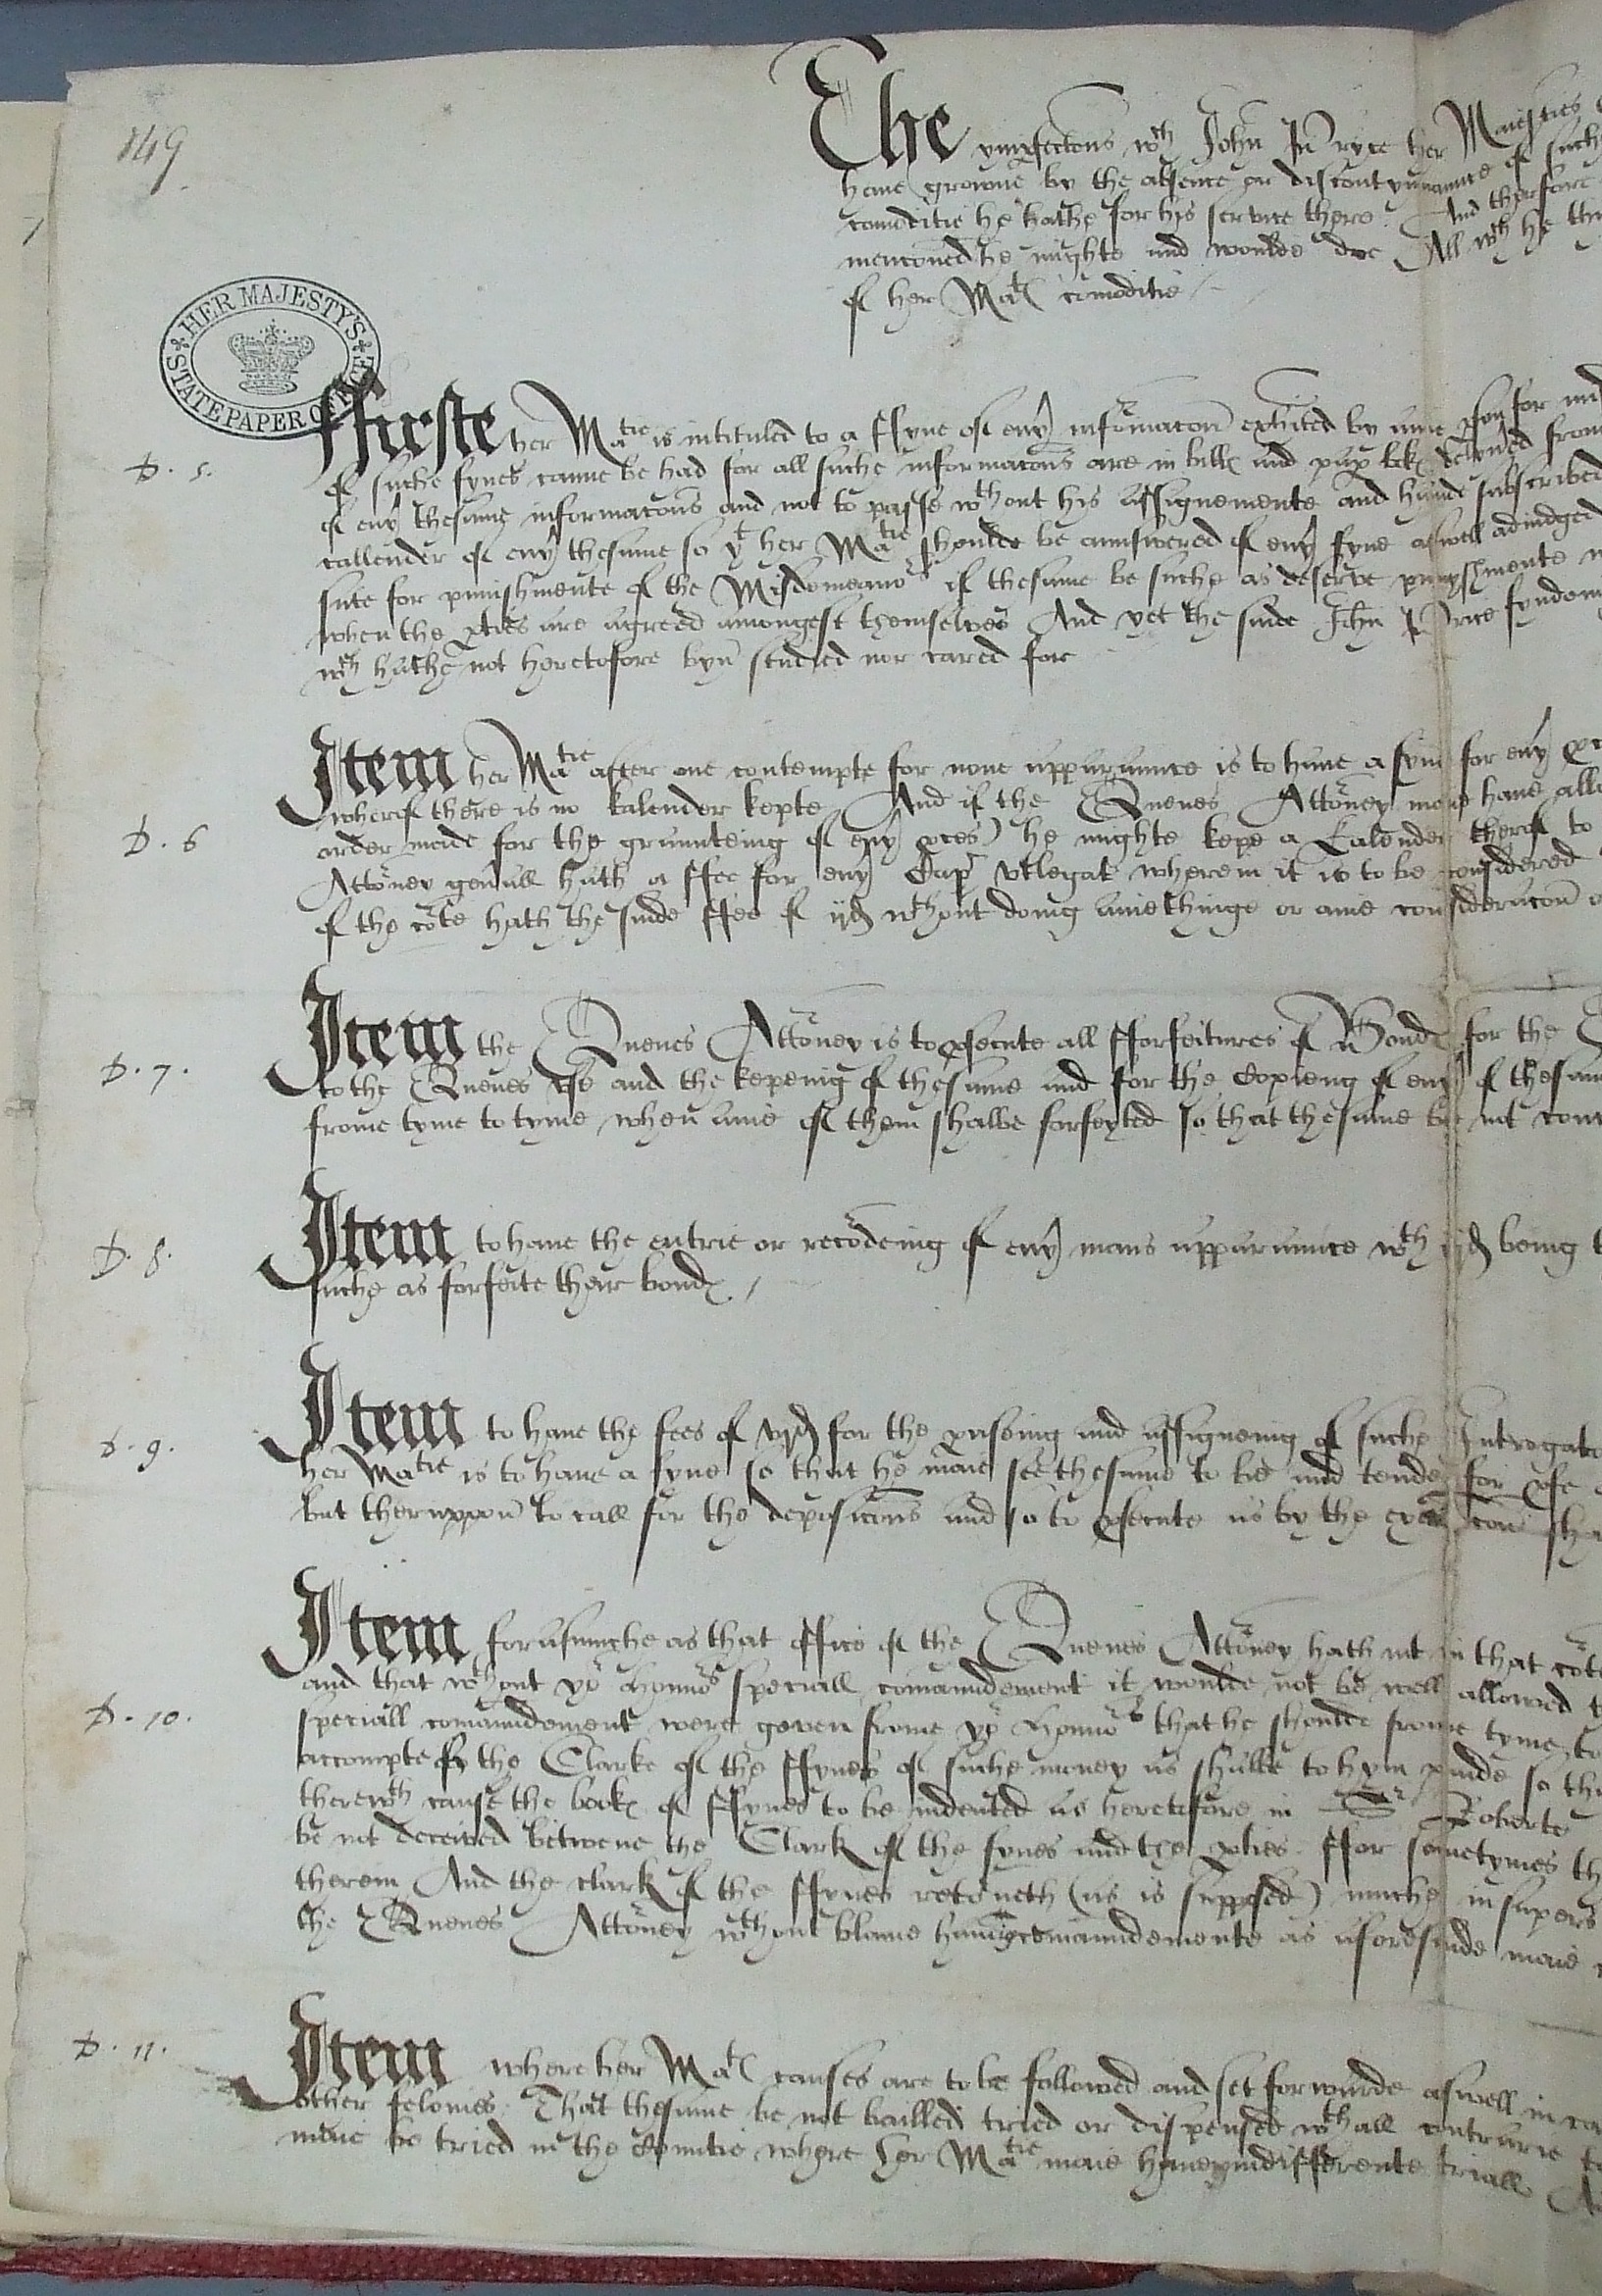 149
The ympfectons wch John Pryce her Maiesties
haue growne by the absence or discontynuaunce of such
comoditie he hathe for his service there And therfore
menconed he mighte and woulde doe All wch he
of her Mats comoditie
HER MAJESTY'S STATE PAPER OFFICE
D. 5.
ffirste her Matie is intituled to a ffyne of eny informacon exhited by anie pson for
of suche fynes canne be had for all suche informacons are in bills and pap boks delyued from
of eny thesame informacons and not to passe wthout his assignemente and hande subscribed
callender of eny thesame so yt her Matie shoulde be aunswered of eny fyne aswell adiudged
sute for punishmente of the Misdemeanors if thesame be suche as deserve punyshmente
when the pties are agreed amongest themselves And yet the saide John Price
wch hathe not heretofore byn studied nor cared for
D. 6
Item her Matie after one contempte for none apparaunce is to haue a fyne for eny
wherof there is no kalender kepte And if the Quenes Attorney maye haue
order made for the graunteing of eny pces) he mighte kepe a Calender therof to
Attorney genrall hath a ffee for eny Cap utlegat wherein it is to be considered
of the corte hath the saide ffee of ijd wthout doing aniethinge or anie consideracon
D. 7.
Item the Quenes Attorney is to psecute all fforfeitures of Bonds for the
to the Quenes vse and the kepeing of thesame and for the Copieng of eny of thesame
frome tyme to tyme when anie of them shalbe forfeyted so that thesame be not
D. 8.
Item to haue the entrie or recordeing of eny mans apparaunce wth ijd being
suche as forfeite their bonds
D. 9.
Item to haue the fees of vjd for the puseing and assigneing of suche
her Matie is to haue a fyne so that he maie see thesame to be and tende for
but theruppon to call for the deposicons and so to psecute as by the
D. 10.
Item forasmuche as that office of the Quenes Attorney hath not in that corte
and that wthout yor honnors speciall comaundement it woulde not be well allowed
speciall comaundement were geven frome yor honnors that he shoulde frome tyme to
accompte of the Clarke of the ffynes of suche money as shalbe to hym paide so
therewth cause the books of ffynes to be indented as heretofore in Sr Roberte
be not deceived betwene the Clark of the fynes and the pties. ffor sometymes
therein And the clark of the ffynes retorneth (as is supposed) muche in supers
the Quenes Attorney wthout blame haueing comaundemente as aforesaide maie
D. 11.
Item where her Mats causes are to be followed and set forwarde aswell in
other felonies. That thesame be not bailled tried or dispensed wthall contrarie to
maie be tried in the Countie where her Matie maie haue indifferente triall